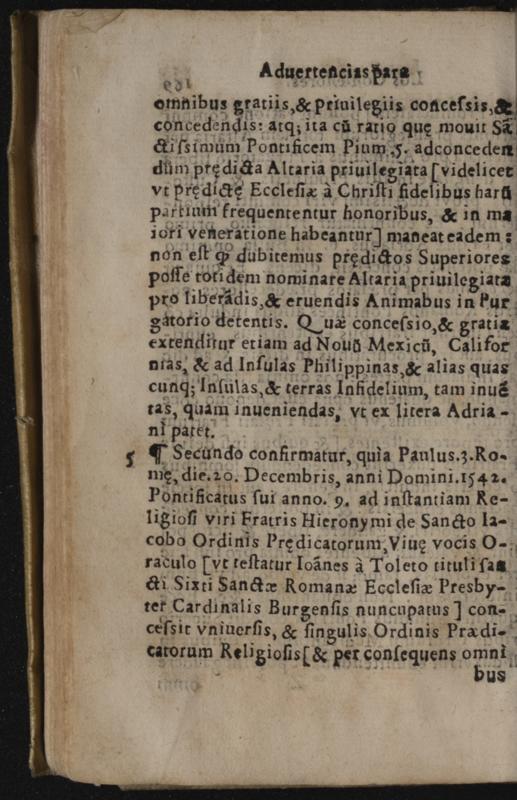 Aduertencias p̃ara
omnibus gratiis, & priuilegiis concessis, &
concedendis: atq; ita cũ ratio quę mouit Sã
ctissimum Pontificem Pium .5. ad conceden
dum prędicta Altaria priuilegiata [videlicet
vt prędictę Ecclesiæ à Christi fidelibus harũ
partium frequententur honoribus, & in ma
iori veneratione habeantur] maneat eadem:
non est ꝙ dubitemus prędictos Superiores
posse totidem nominare Altaria priuilegiata
pro liberãdis, & eruendis Animabus in Pur
gatorio detentis. Quæ concessio, & gratia
extenditur etiam ad Nouũ Mexicũ, Califor
nias, & ad Insulas Philippinas, & alias quas
cunq; Insulas, & terras Infidelium, tam inuẽ
tas, quam inueniendas, vt ex litera Adria -
ni patet.
5 ¶ Secundo confirmatur, quia Paulus.3. Ro-
mę, die.20. Decembris, anni Domini.1542.
Pontificatus sui anno. 9. ad instantiam Re-
ligiosi viri Fratris Hieronymi de Sancto Ia-
cobo Ordinis Prędicatorum, Viuę vocis O-
raculo [vt testatur Ioãnes à Toleto tituli san
cti Sixti Sanctæ Romanæ Ecclesiæ Presby-
ter Cardinalis Burgensis nuncupatus] con-
cessit vniuersis, & singulis Ordinis Prædi-
catorum Religiosis [& per consequens omni
bus